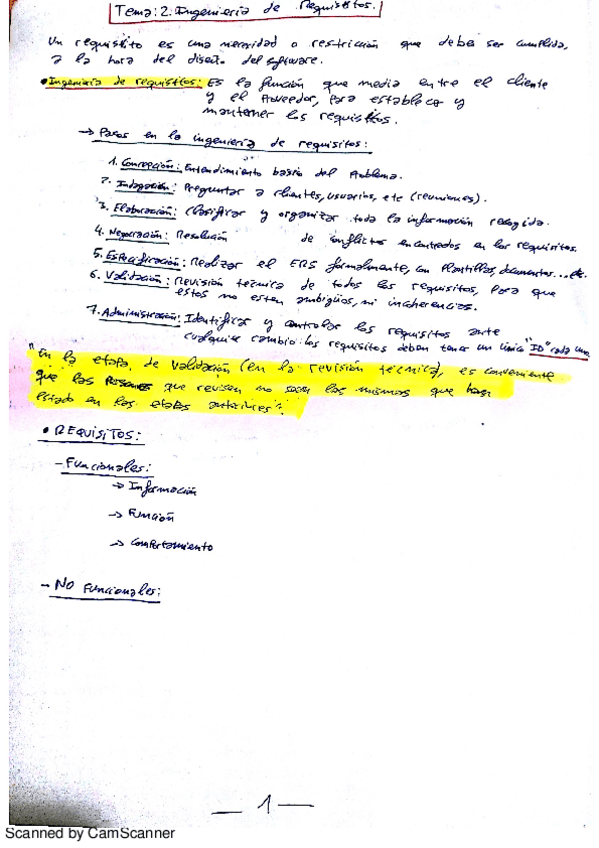 Tema: 2. Ingeniería de Requisitos.
Un requisito es una necesidad o restricción que debe ser cumplida,
a la hora del diseño del software.
• Ingeniería de requisitos: Es la función que media entre el cliente
y el Proveedor, para establecer y
mantener los requisitos.
→ Pasos en la ingeniería de requisitos:
1. Concepción: Entendimiento basico del Problema.
2. Indagación: Preguntar a clientes, usuarios, etc (reuniones).
3. Elaboración: clasificar y organizar toda la información recogida.
4. Negociación: Resolución de conflictos encontrados en los requisitos.
5. Especificación: Realizar el ERS formalmente, con Plantillas, documentos...etc.
6. Validación: Revisión técnica de todos los requisitos, para que
estos no esten ambigüos, ni incoherencias.
7. Administración: Identificar y controlar los requisitos ante
cualquier cambio. los requisitos deben tener un único "ID" cada uno
"En la etapa de validación (en la revisión técnica), es conveniente
que las Personas que revisen no sean las mismas que han
estado en las etapas anteriores".
• REQUISITOS:
- Funcionales:
→ Información
→ Función
→ Comportamiento
- No Funcionales:
— 1 —
Scanned by CamScanner